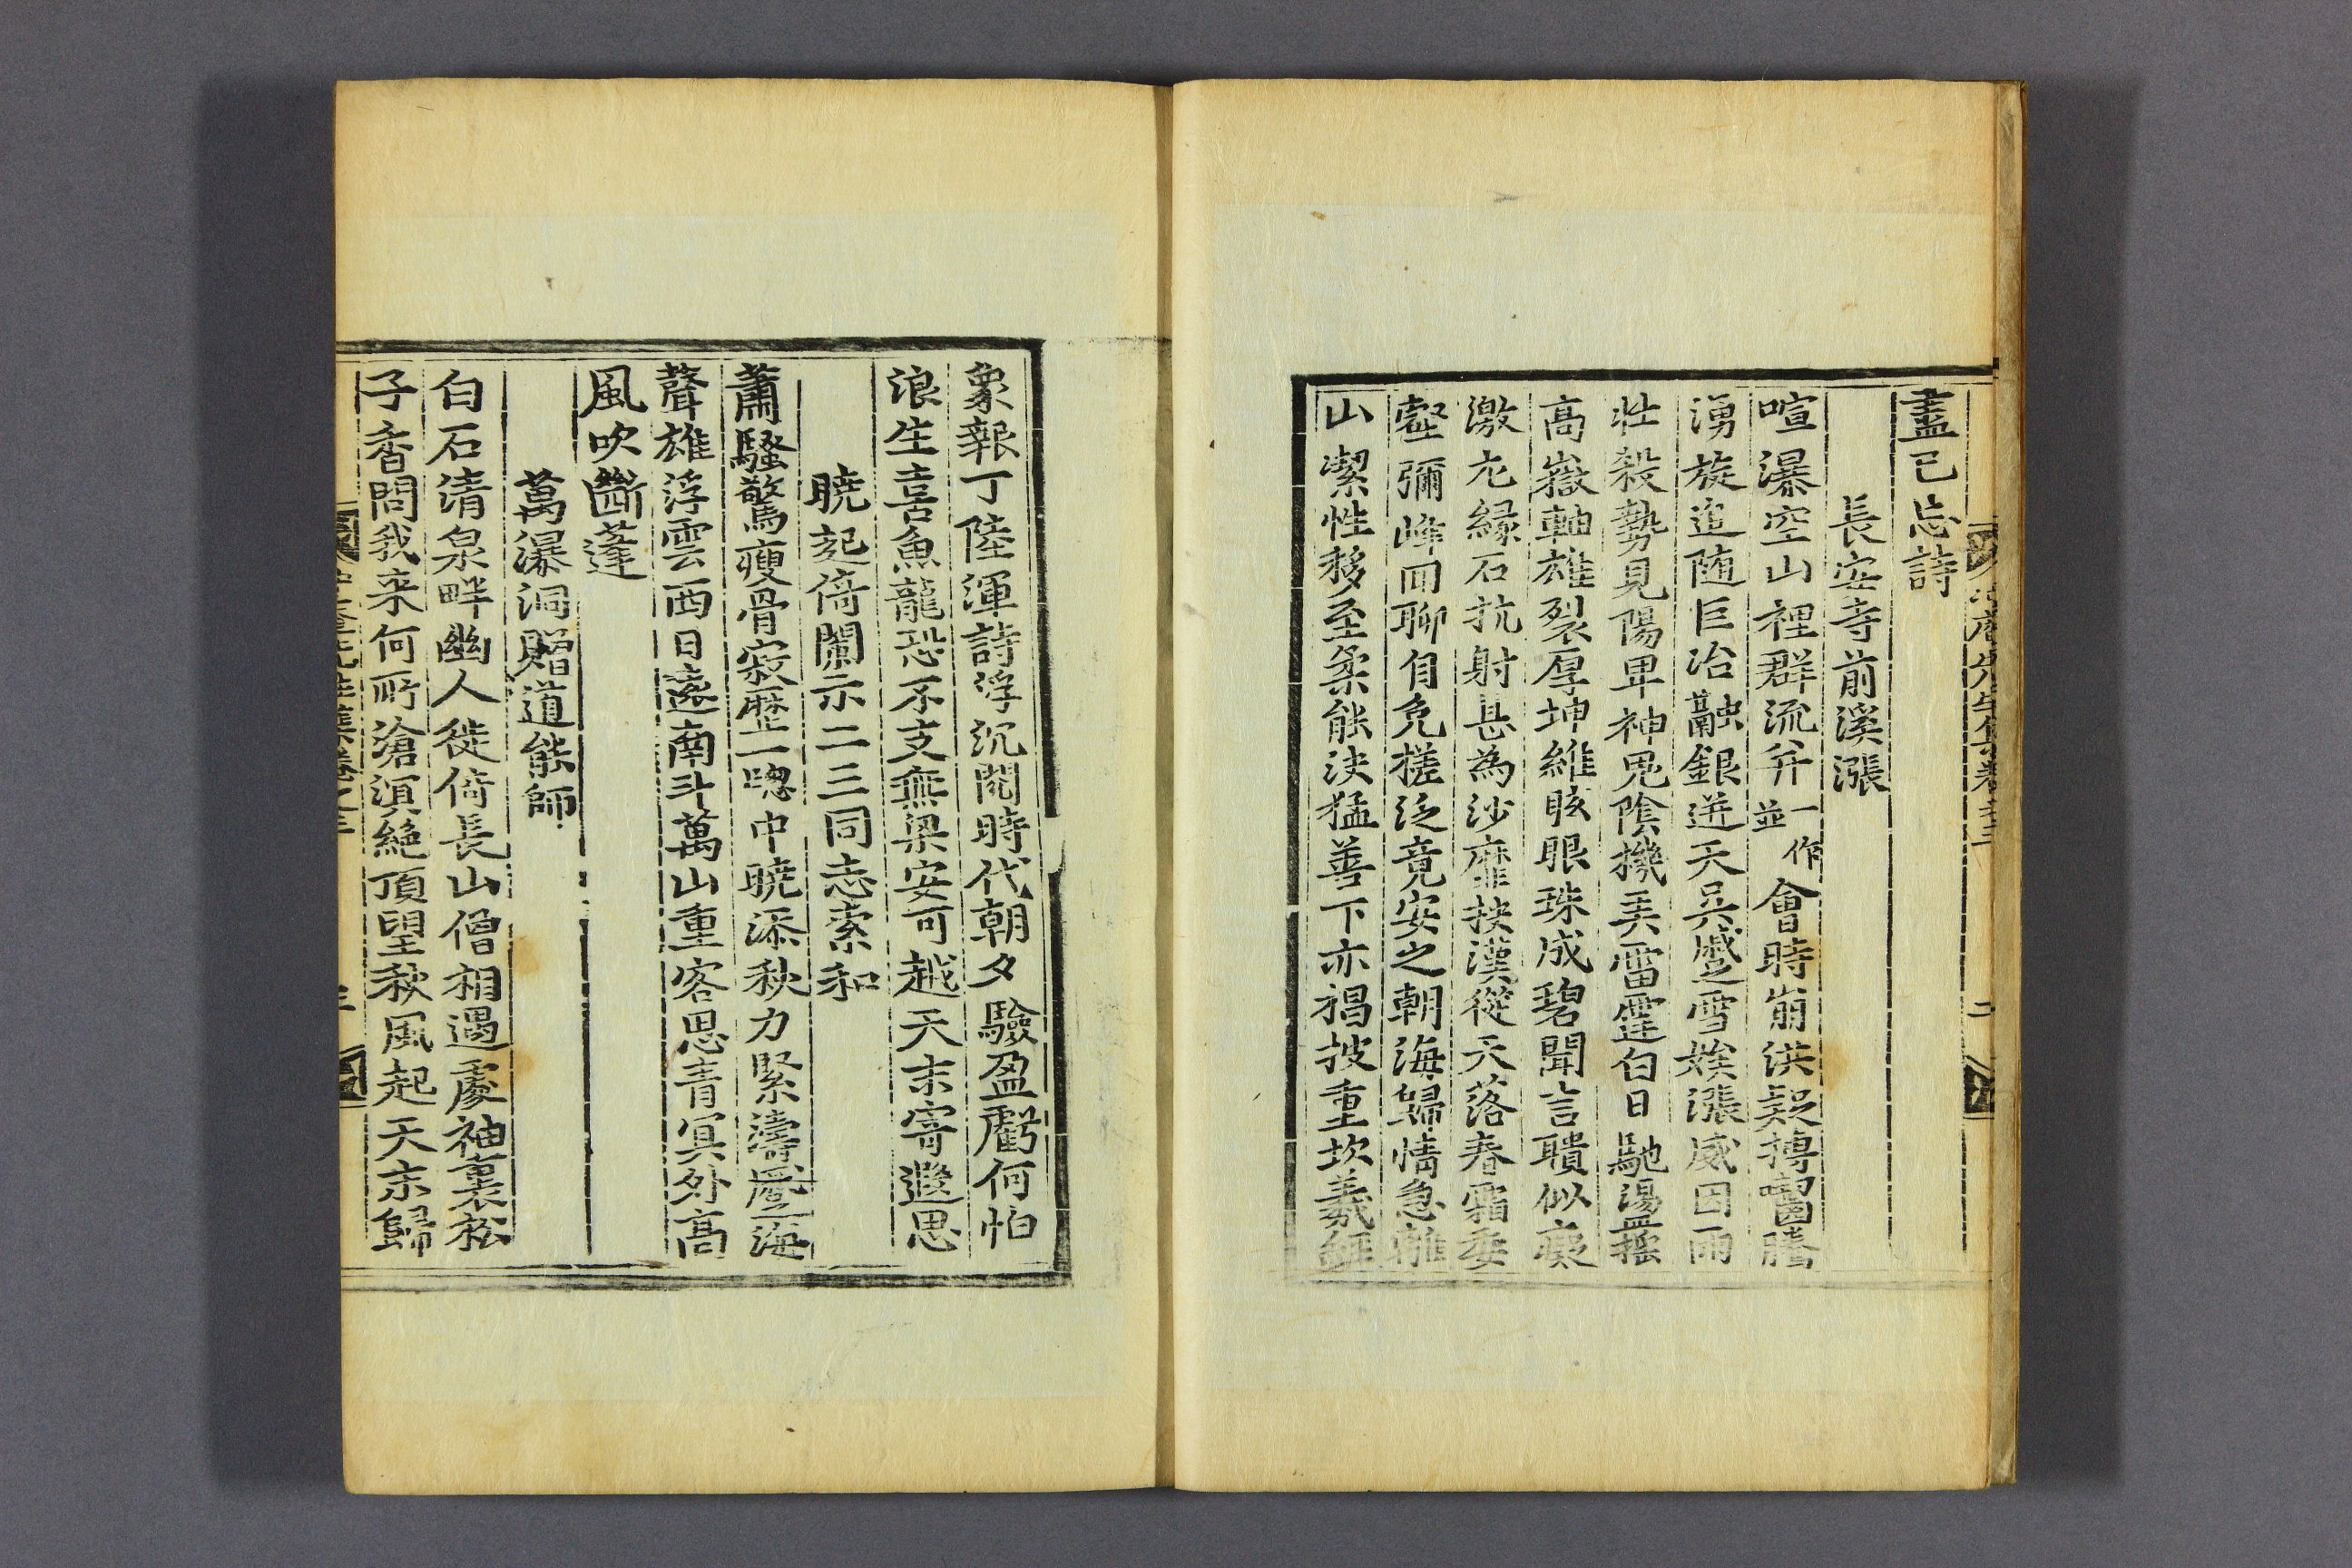 盡已忘詩
長安寺前溪漲
喧瀑空山裡群流幷一作並會時崩洪疑搏齧騰
湧旋追随巨冶融銀迸天吳蹙雪嬉漲威因雨
壯殺勢見陽卑神鬼陰機弄雷霆白日馳湯搖
高嶽軸雄裂厚坤維眩眼珠成碧聞言聵似癡
激尤緣石抗射甚為沙靡挾漢從天落春霜委
壑彌峰回聊自免槎泛竟安之朝海歸情急離
山潔性移至柔能決猛善下亦裮披重坎羲經
象報丁陸渾詩浮沉閱時代朝夕驗盈虧何怕
浪生喜魚龍恐不支無梁安可越天末寄遐思
曉起倚闌示二三同志索和
蕭騷驚瘦骨寂歷一窓中曉添秋力緊濤壓海
聲雄浮雲西日遠南斗萬山重客思青冥外高
風吹斷蓬
萬瀑洞贈道能師
白石清泉畔幽人徙倚長山僧相遇處袖裏松
子香問我来何所滄溟絶頂望秋風起天末歸